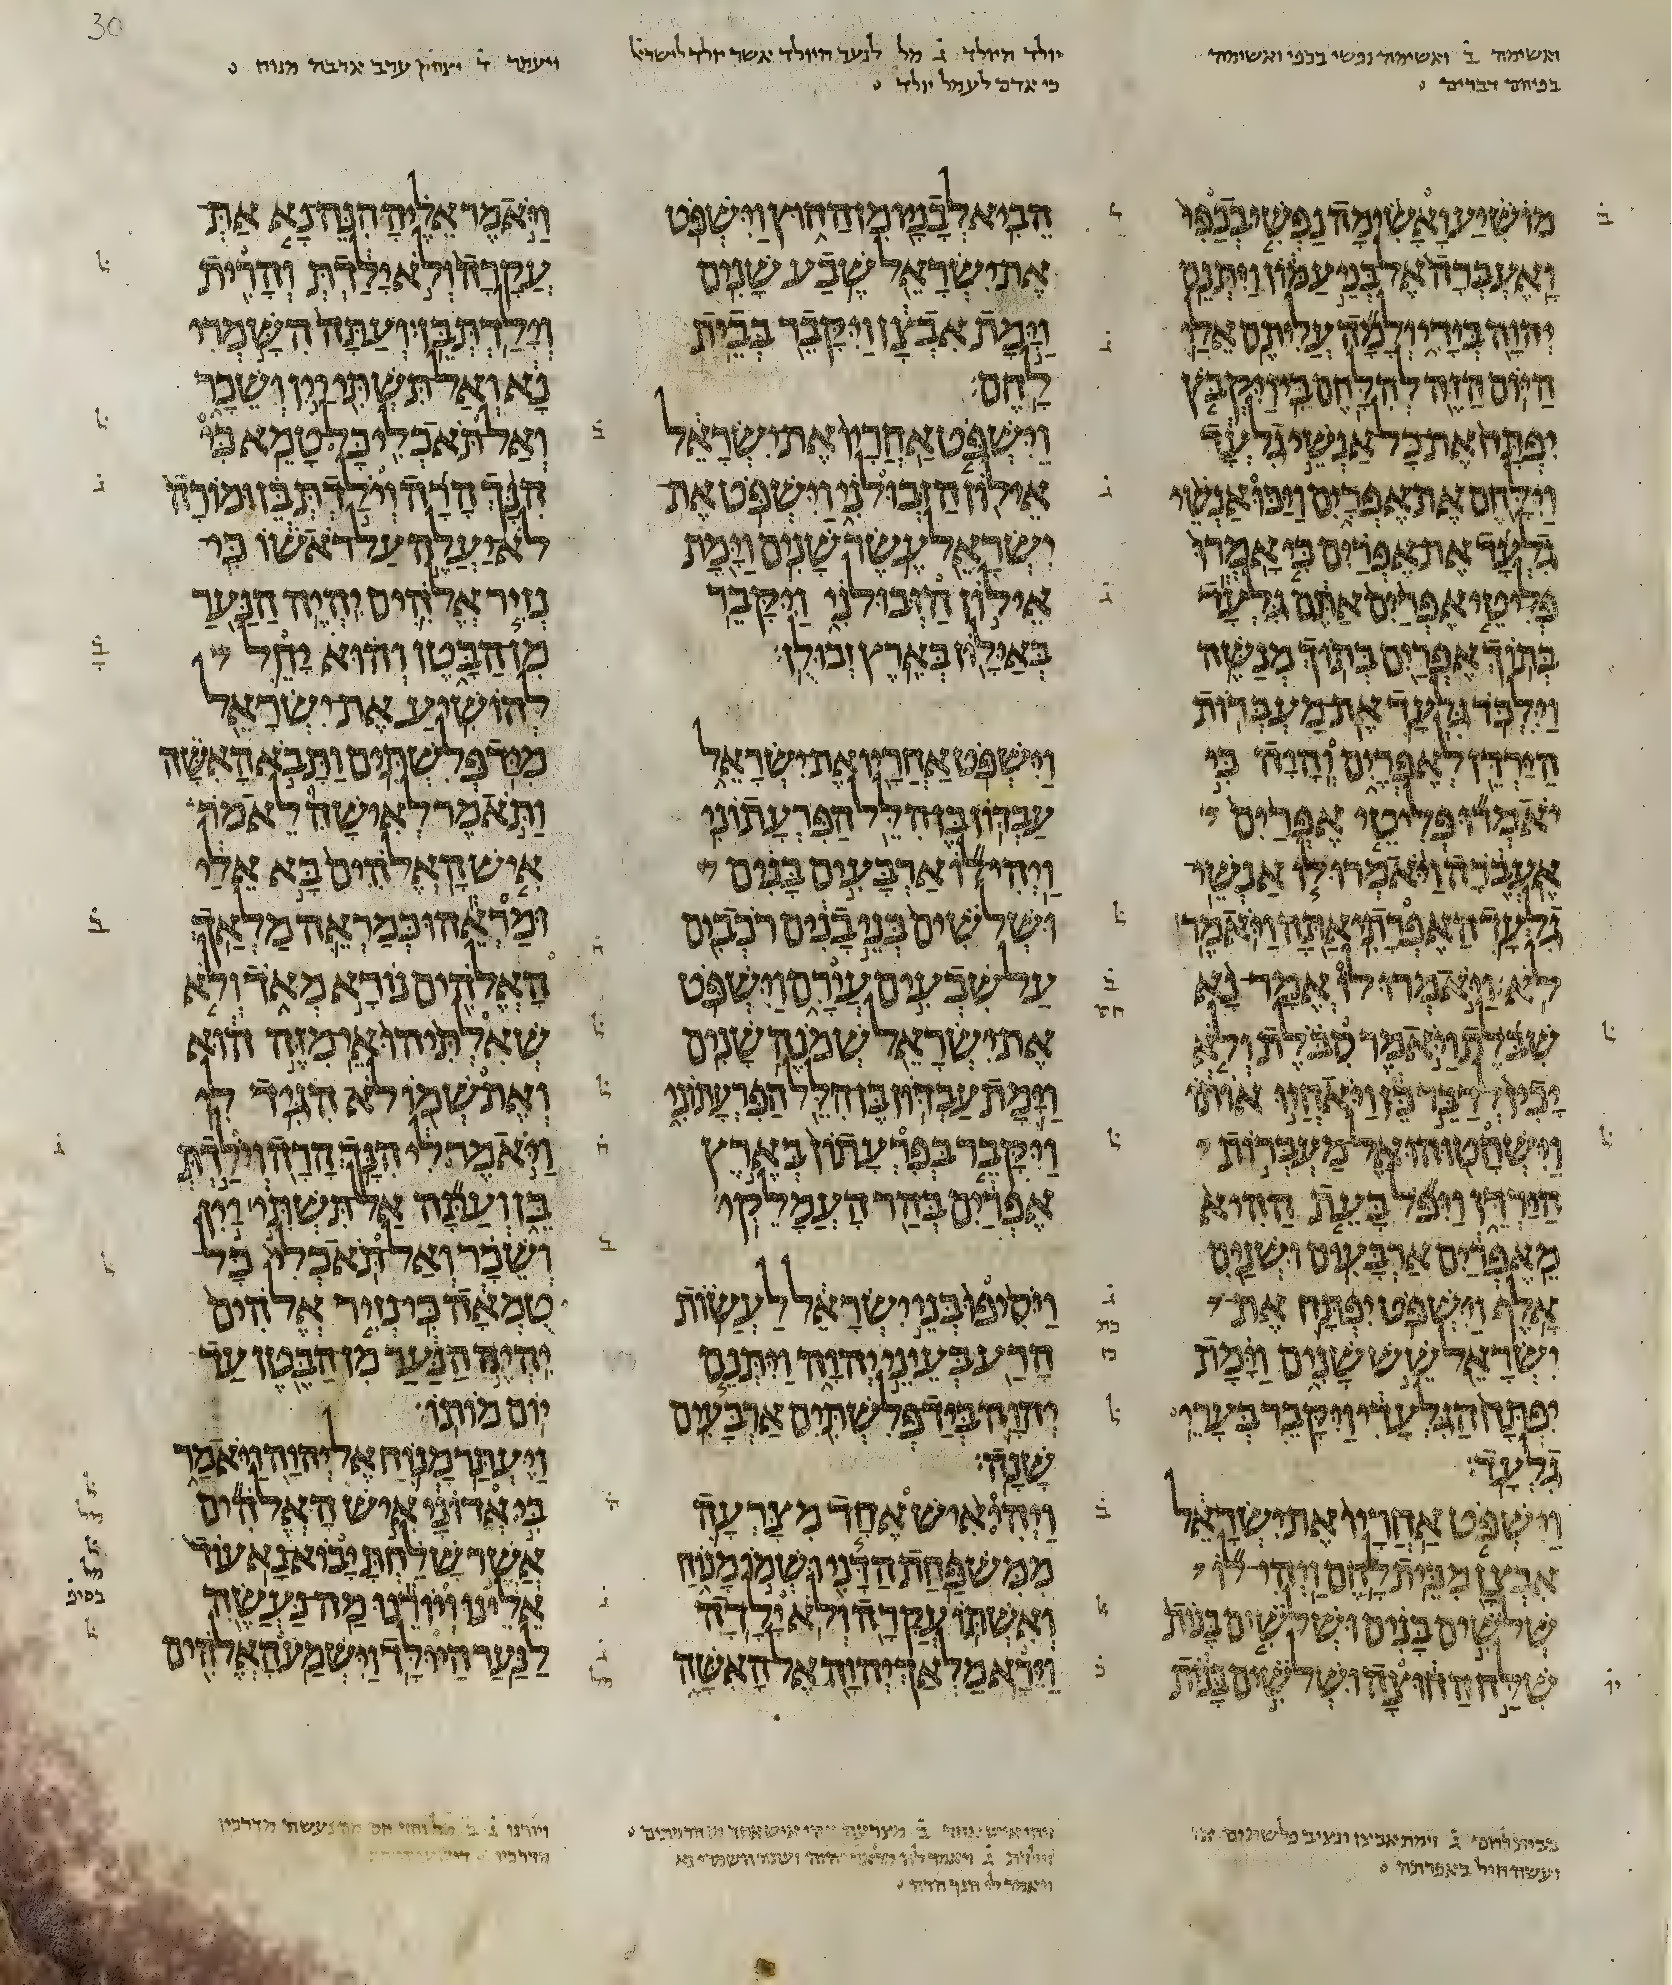 ואשימה ב ואשימה נפשי בכפי ואשימה
בפיהם דברים
יולד היולד ג מל לנער היולד אשר יולד לישראל
כי אדם לעמל יולד
ויעתר ד יצחק ערב ארבה מנוח
מושיע ואשימה נפשי בכפי
ואעברה אל בני עמון ויתנם
יהוה בידי ולמה עליתם אלי
היום הזה להלחם בי ויקבץ
יפתח את כל אנשי גלעד
וילחם את אפרים ויכו אנשי
גלעד את אפרים כי אמרו
פליטי אפרים אתם גלעד
בתוך אפרים בתוך מנשה
וילכד גלעד את מעברות
הירדן לאפרים והיה כי
יאמרו פליטי אפרים
אעברה ויאמרו לו אנשי
גלעד האפרתי אתה ויאמר
לא ויאמרו לו אמר נא
שבלת ויאמר סבלת ולא
יכין לדבר כן ויאחזו אותו
וישחטוהו אל מעברות
הירדן ויפל בעת ההיא
מאפרים ארבעים ושנים
אלף וישפט יפתח את
ישראל שש שנים וימת
יפתח הגלעדי ויקבר בערי
גלעד
וישפט אחריו את ישראל
אבצן מבית לחם ויהי לו
שלשים בנים ושלשים בנות
שלח החוצה ושלשים בנות
הביא לבניו מן החוץ וישפט
את ישראל שבע שנים
וימת אבצן ויקבר בבית
לחם
וישפט אחריו את ישראל
אילון הזבולני וישפט את
ישראל עשר שנים וימת
אילון הזבולני ויקבר
באילון בארץ זבולן
וישפט אחריו את ישראל
עבדון בן הלל הפרעתוני
ויהי לו ארבעים בנים
ושלשים בני בנים רכבים
על שבעים עירם וישפט
את ישראל שמנה שנים
וימת עבדון בן הלל הפרעתוני
ויקבר בפרעתון בארץ
אפרים בהר העמלקי
ויסיפו בני ישראל לעשות
הרע בעיני יהוה ויתנם
יהוה ביד פלשתים ארבעים
שנה
ויהי איש אחד מצרעה
ממשפחת הדני ושמו מנוח
ואשתו עקרה ולא ילדה
וירא מלאך יהוה אל האשה
ויאמר אליה הנה נא את
עקרה ולא ילדת והרית
וילדת בן ועתה השמרי
נא ואל תשתי יין ושכר
ואל תאכלי כל טמא כי
הנך הרה וילדת בן ומורה
לא יעלה על ראשו כי
נזיר אלהים יהיה הנער
מן הבטן והוא יחל
להושיע את ישראל
מיד פלשתים ותבא האשה
ותאמר לאישה לאמר
איש האלהים בא אלי
ומראהו כמראה מלאך
האלהים נורא מאד ולא
שאלתיהו אי מזה הוא
ואת שמו לא הגיד לי
ויאמר לי הנך הרה וילדת
בן ועתה אל תשתי יין
ושכר ואל תאכלי כל
טמאה כי נזיר אלהים
יהיה הנער מן הבטן עד
יום מותו
ויעתר מנוח אל יהוה ויאמר
בי אדוני איש האלהים
אשר שלחת יבוא נא עוד
אלינו ויורנו מה נעשה
לנער היולד וישמע האלהים
בבית לחם ג וימת אבצן ונציב פלשתים אז
ועשה חיל באפרתה
ויהי איש אחד ב מצרעה ויהי איש אחד מן הרמתים
ויאמר לי הנך הרה